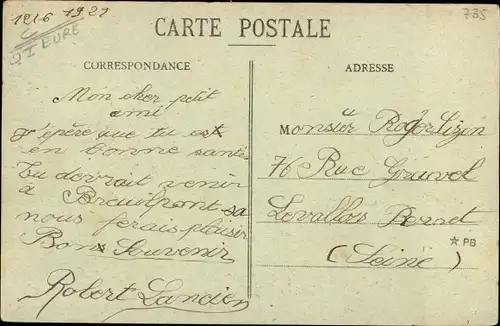 1216 1922
27 EURE
735
CARTE POSTALE
CORRESPONDANCE
ADRESSE
Mon cher petit
ami
J'épère que tu est
en bonne santé
Tu devrait venir
à Breuilpont sa
nous ferais plaisir
Bon Souvenir
Robert Lancien
Monsieur Roger Lizin
76 Rue Gravel
Levallois Perret
(Seine)
PB